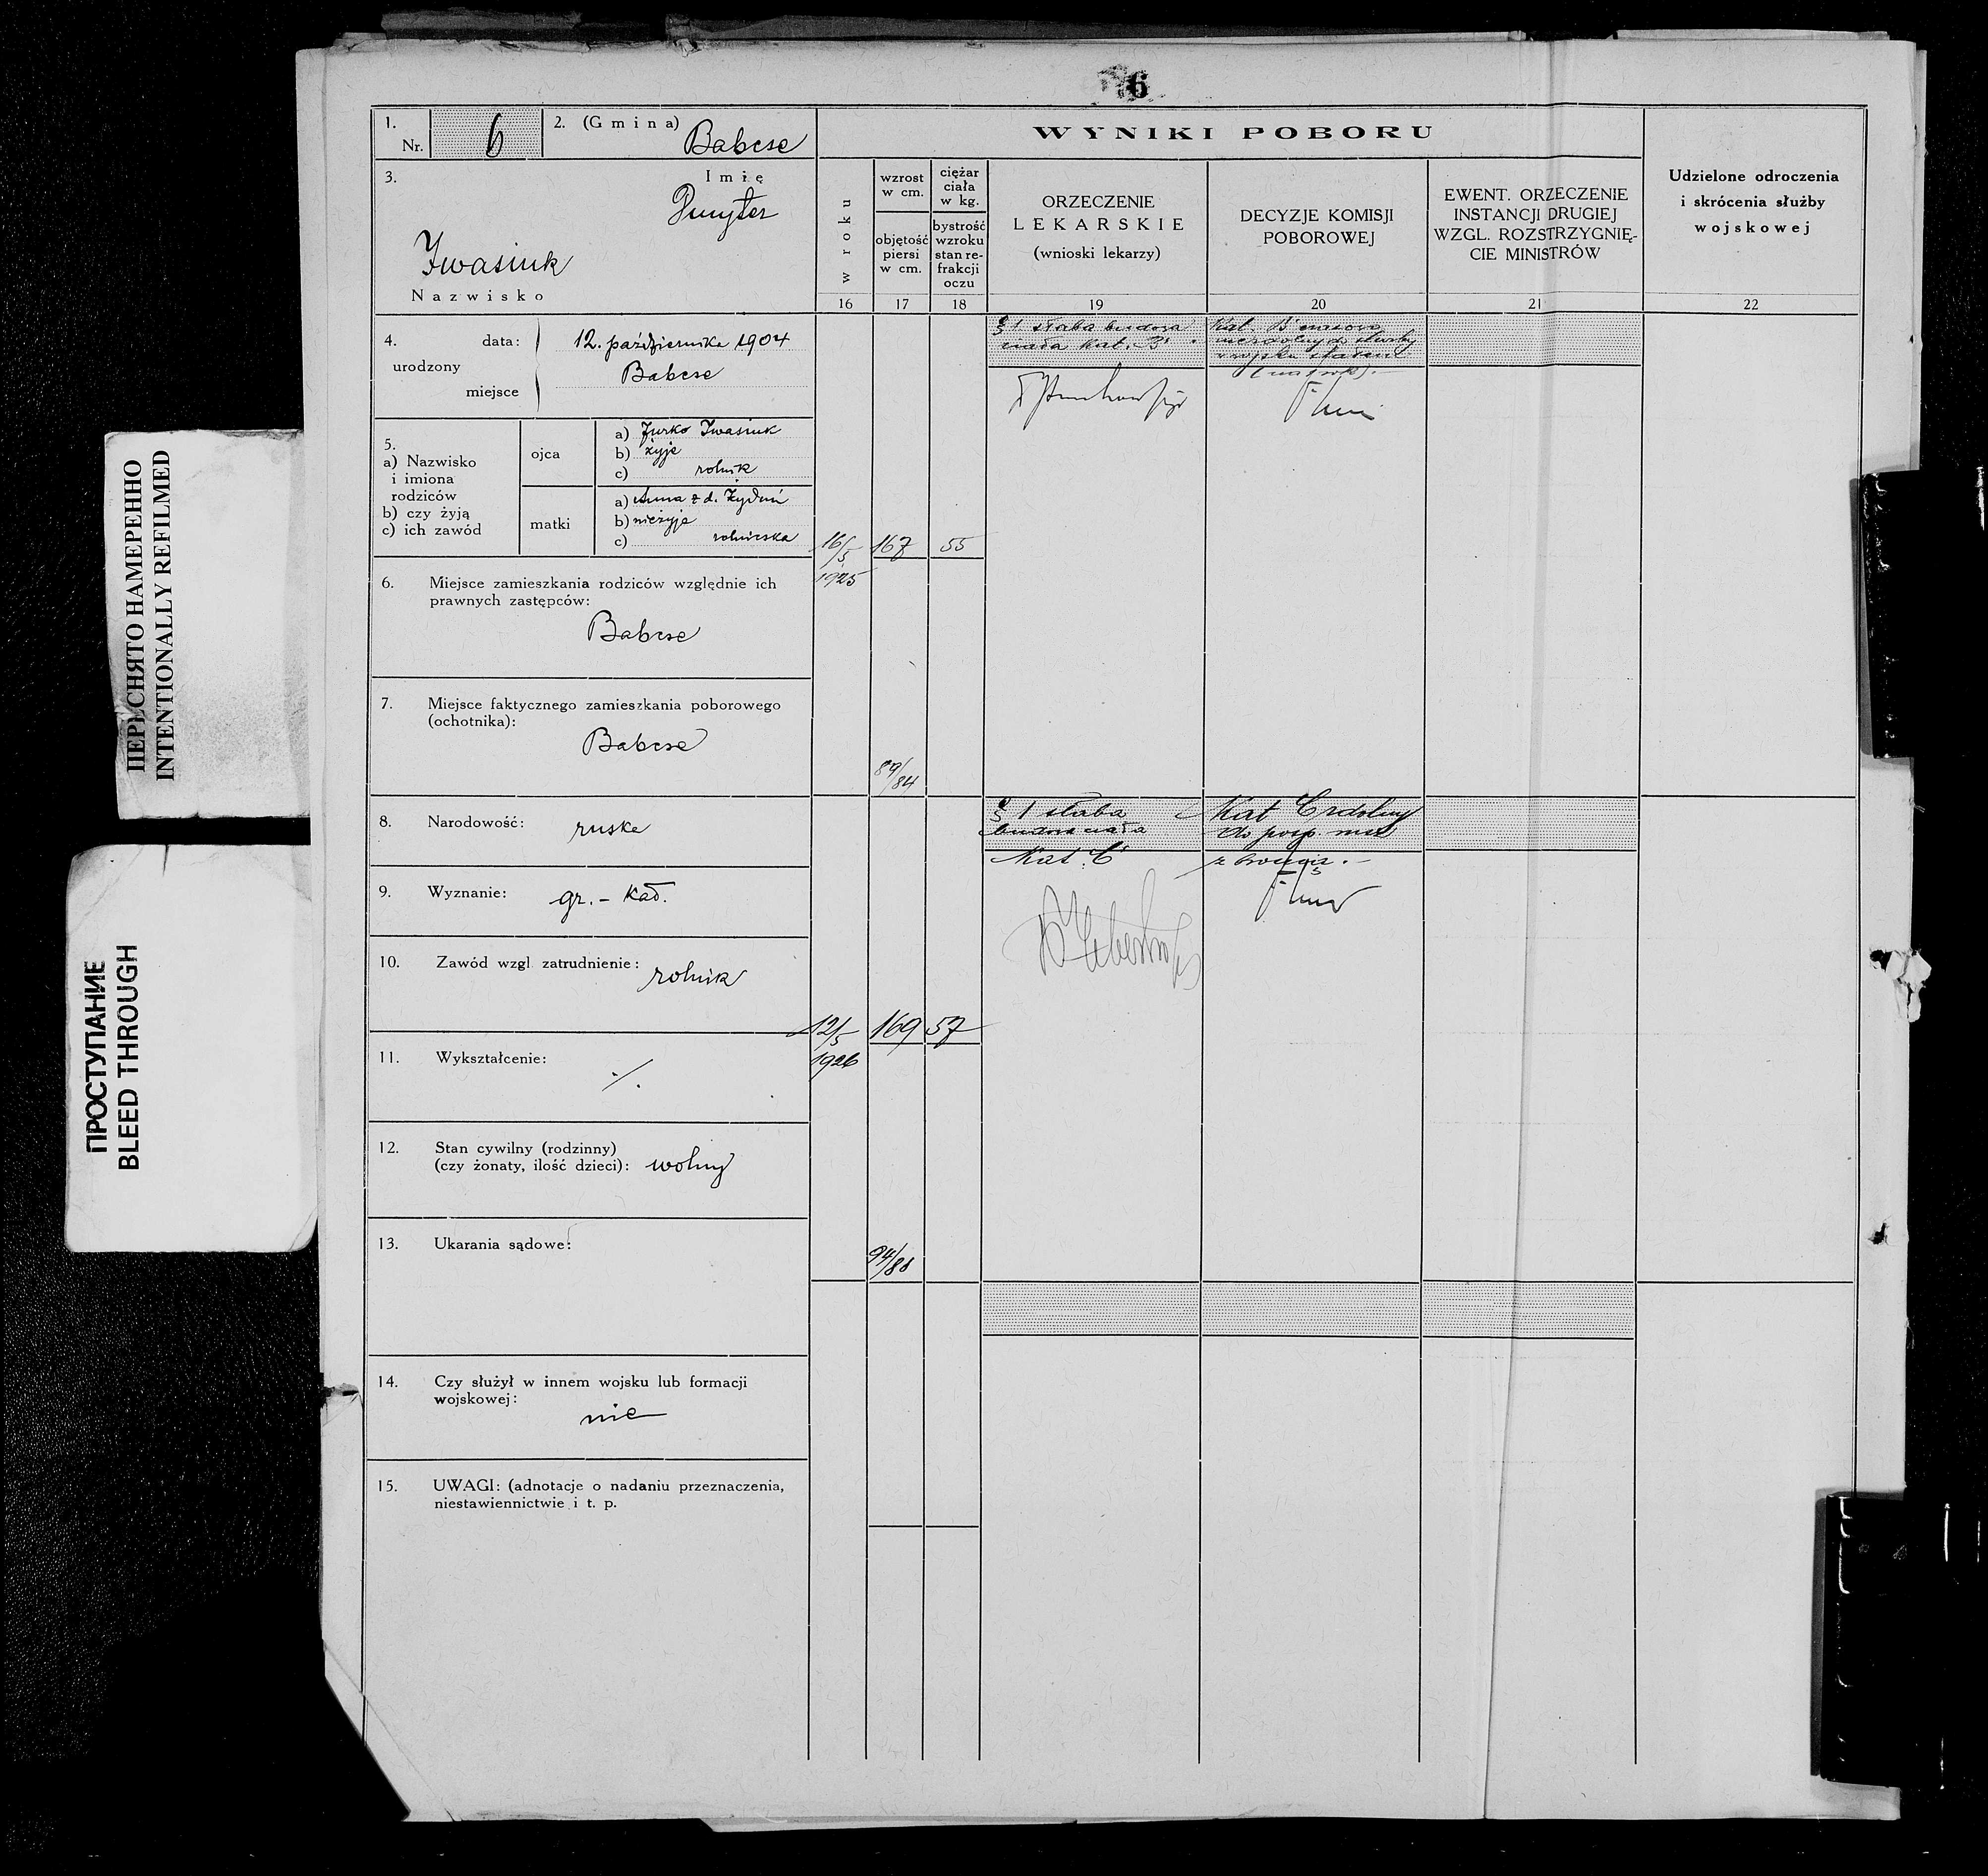 6
1.
Nr. 6
2. (Gmina) Babcse
WYNIKI POBORU
3.
Imię
Dmyter
Iwasiuk
Nazwisko
w roku
wzrost
w cm.
objętość
piersi
w cm.
ciężar
ciała
w kg.
bystrość
wzroku
stan re-
frakcji
oczu
ORZECZENIE
LEKARSKIE
(wnioski lekarzy)
DECYZJE KOMISJI
POBOROWEJ
EWENT. ORZECZENIE
INSTANCJI DRUGIEJ
WZGL. ROZSTRZYGNIĘ-
CIE MINISTRÓW
Udzielone odroczenia
i skrócenia służby
wojskowej
16 17 18 19 20 21 22
4.
urodzony
data: 12. października 1904
miejsce Babcse
§ 1 słaba budowa
ciała Kat. B
Kat. B
5.
a) Nazwisko
i imiona
rodziców
b) czy żyją
c) ich zawód
ojca
a) Jurko Iwasiuk
b) żyje
c) rolnik
matki
a) Anna z d.
b) nieżyje
c) rolniczka
16/5 167 55
1925
6. Miejsce zamieszkania rodziców względnie ich
prawnych zastępców:
Babcse
7. Miejsce faktycznego zamieszkania poborowego
(ochotnika):
Babcse
89/84
8. Narodowość: ruska
§ 1 słaba
budowa ciała
Kat. C
Kat C zdolny
do posp. rusz
z bronią.-
9. Wyznanie: gr.- kat.
10. Zawód wzgl. zatrudnienie: rolnik
12/5 169 57
1926
11. Wykształcenie:
./.
12. Stan cywilny (rodzinny)
(czy żonaty, ilość dzieci): wolny
13. Ukarania sądowe:
94/88
14. Czy służył w innem wojsku lub formacji
wojskowej:
nie
15. UWAGI: (adnotacje o nadaniu przeznaczenia,
niestawiennictwie i t. p.
ПЕРЕСНЯТО НАМЕРЕННО
INTENTIONALLY REFILMED
ПРОСТУПАНИЕ
BLEED THROUGH